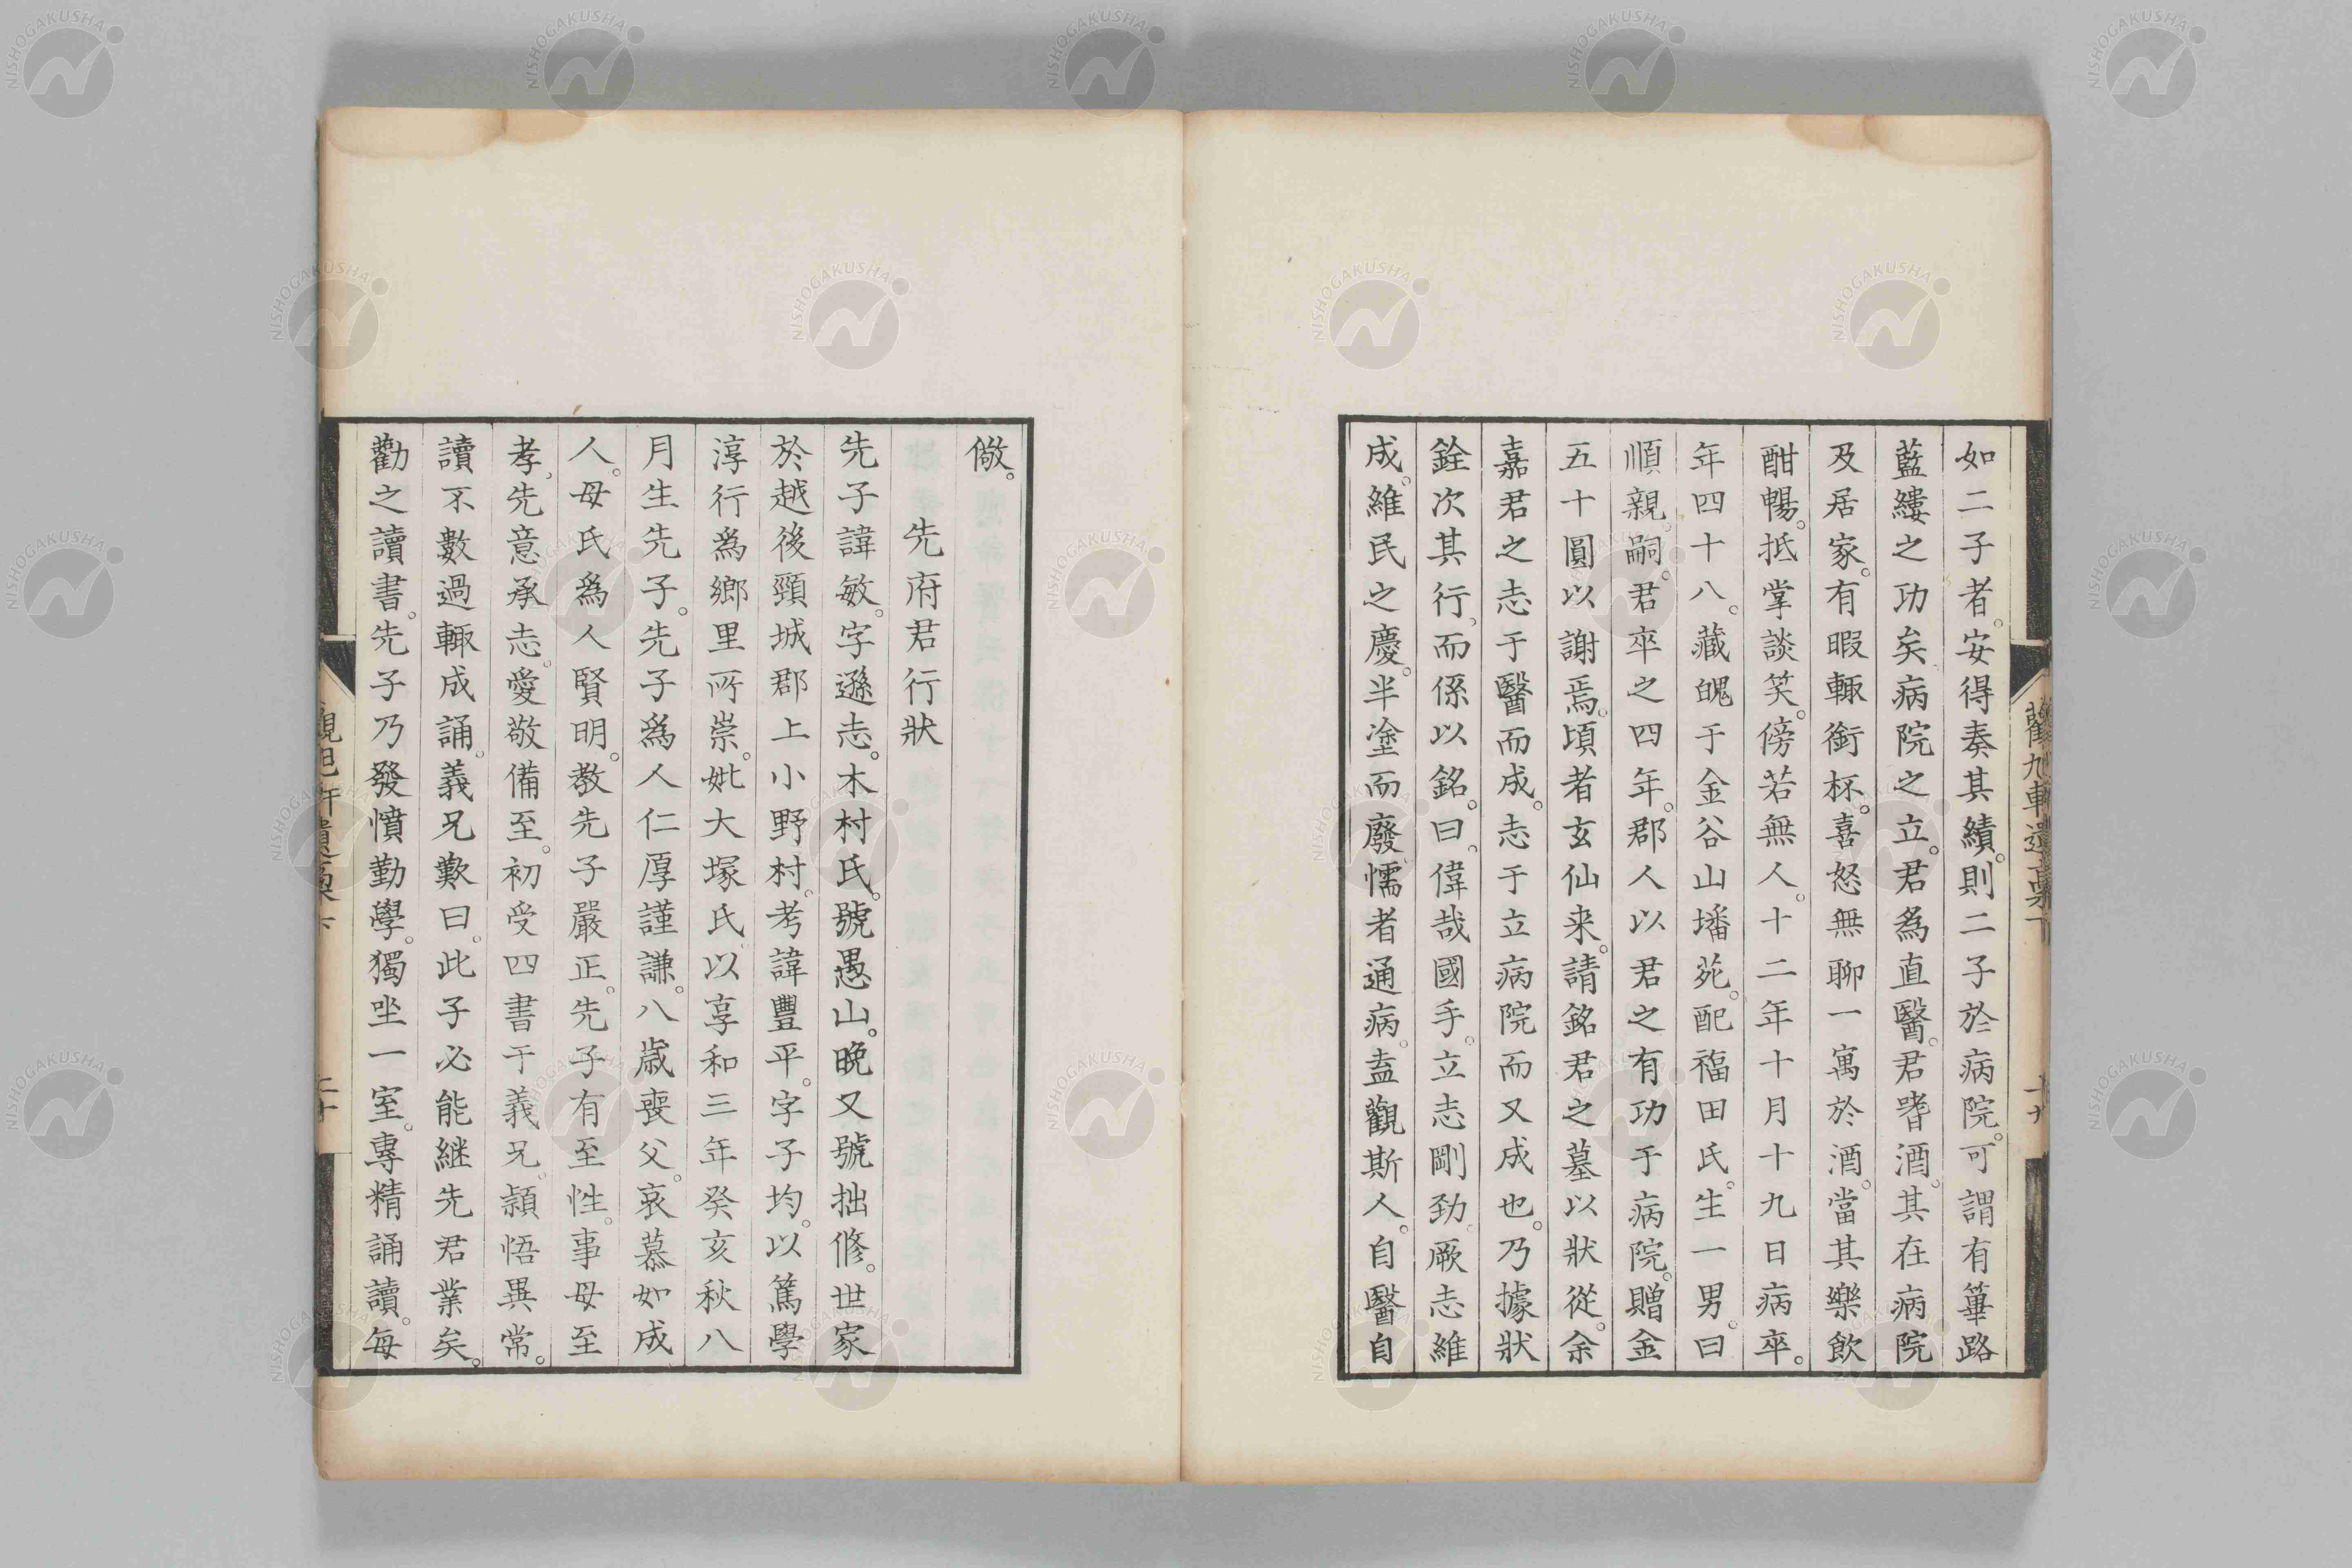 如二子者。安得奏其績。則二子於病院。可謂有篳路
藍縷之功矣。病院之立。君為直醫。君嗜酒。其在病院
及居家。有暇輙銜杯。喜怒無聊一寓於酒。當其樂飲
酣暢。抵掌談笑。傍若無人。十二年十月十九日病卒。
年四十八。藏魄于金谷山墦苑。配福田氏。生一男。曰
順親。嗣。君卒之四年。郡人以君之有功于病院。贈金
五十圓以謝焉。頃者玄仙来。請銘君之墓以狀從。余
嘉君之志于醫而成。志于立病院而又成也。乃據狀
銓次其行。而係以銘。曰。偉哉國手。立志剛勁。厥志維
成。維民之慶。半塗而廢。懦者通病。盍觀斯人。自醫自
儆。
先府君行狀
先子諱敏。字遜志。木村氏。號愚山。晚又號拙修。世家
於越後頸城郡上小野村。考諱豐平。字子均。以篤學
淳行為鄉里所崇。妣大塚氏以享和三年癸亥秋八
月生先子。先子為人仁厚謹謙。八歲喪父。哀慕如成
人。母氏為人賢明。教先子嚴正。先子有至性。事母至
孝。先意承志。愛敬備至。初受四書于義兄。穎悟異常。
讀不數過輙成誦。義兄歎曰。此子必能継先君業矣。
勸之讀書。先子乃發憤勤學。獨坐一室。專精誦讀。每
NISHOGAKUSHA